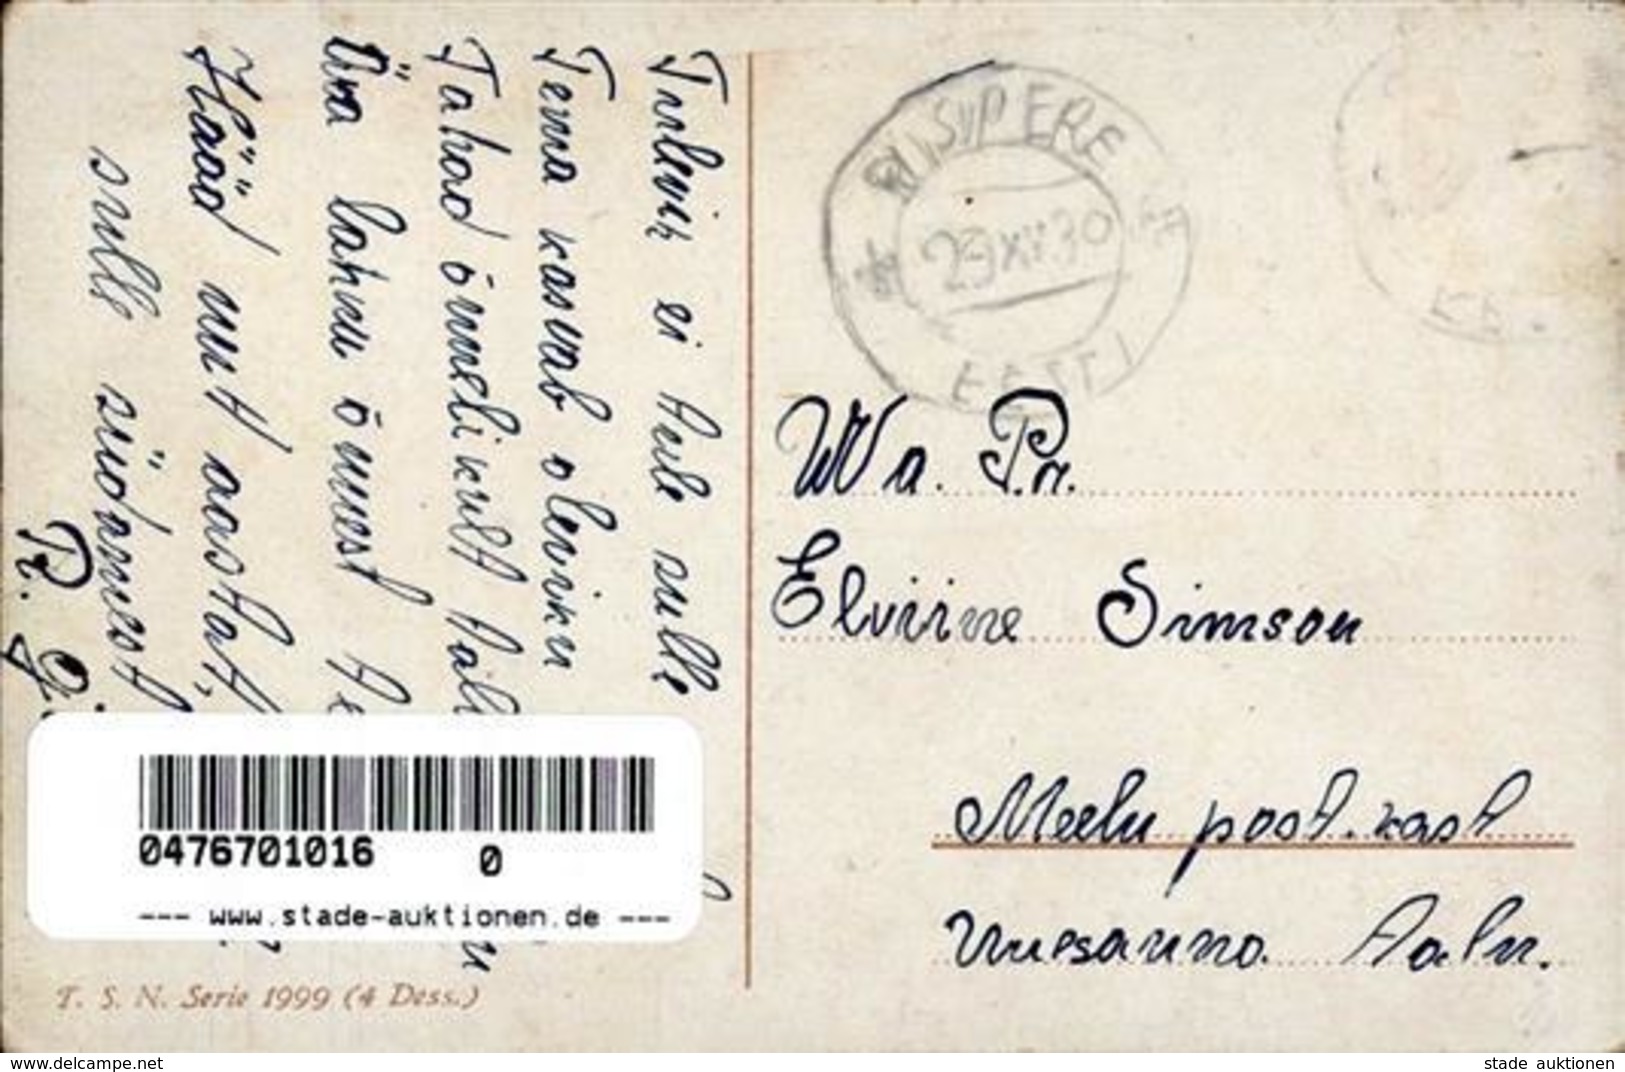 Tulevik ei tule sulle
Tema kasvab oleviku
Tahad õnnelikult
Ära lahku õnnest
Hääd uut aastat,
sulle südamest
R. G.
RIISIPERE
29 XII 30
EESTI
Wa. Pr.
Elviine Simson
Meelu post. kast
Uuesauna Talu.
0476701016 0
--- www.stade-auktionen.de ---
T. S. N. Serie 1999 (4 Dess.)
https://www.delcampe.net
stade auktionen